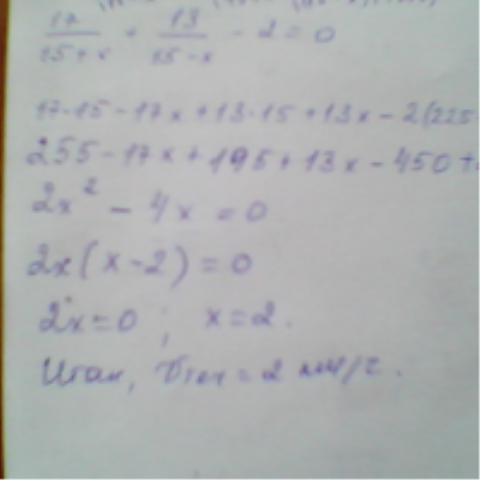 17/15+x + 13/15-x - 2 = 0
17·15 - 17x + 13·15 + 13x - 2(225
255 - 17x + 195 + 13x - 450 +
2x² - 4x = 0
2x(x-2) = 0
2x = 0 ; x = 2.
Итак, Vтеч = 2 км/ч.